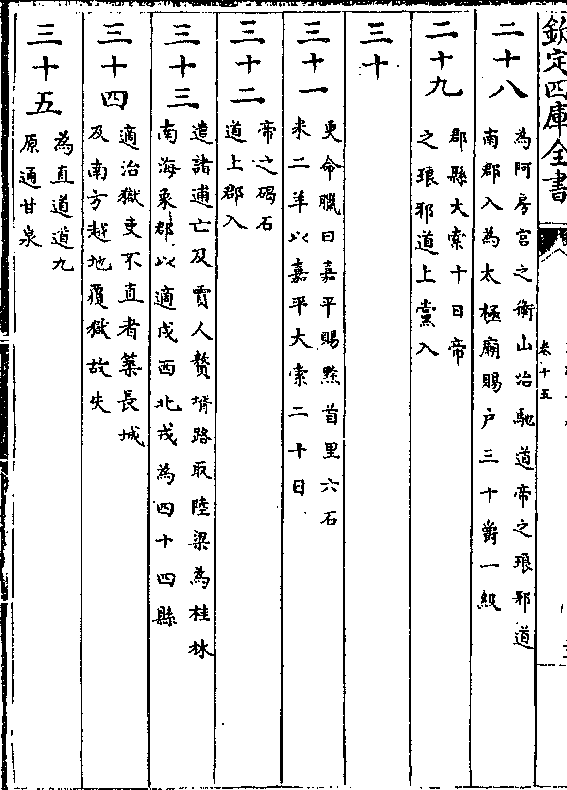 欽定四庫全書
卷十五
二十八
為阿房宮之衡山治馳道帝之琅邪道
南郡入為太極廟賜戶三十爵一級
二十九
郡縣大索十日帝
之琅邪道上黨入
三十
三十一
更命臘曰嘉平賜黔首里六石
米二羊以嘉平大索二十日
三十二
帝之碣石
道上郡入
三十三
遣諸逋亡及賈人贅壻路取陸梁為桂林
南海象郡以適戍西北戎為四十四縣
三十四
適治獄吏不直者築長城
及南方越地覆獄故失
三十五
為直道道九
原通甘泉